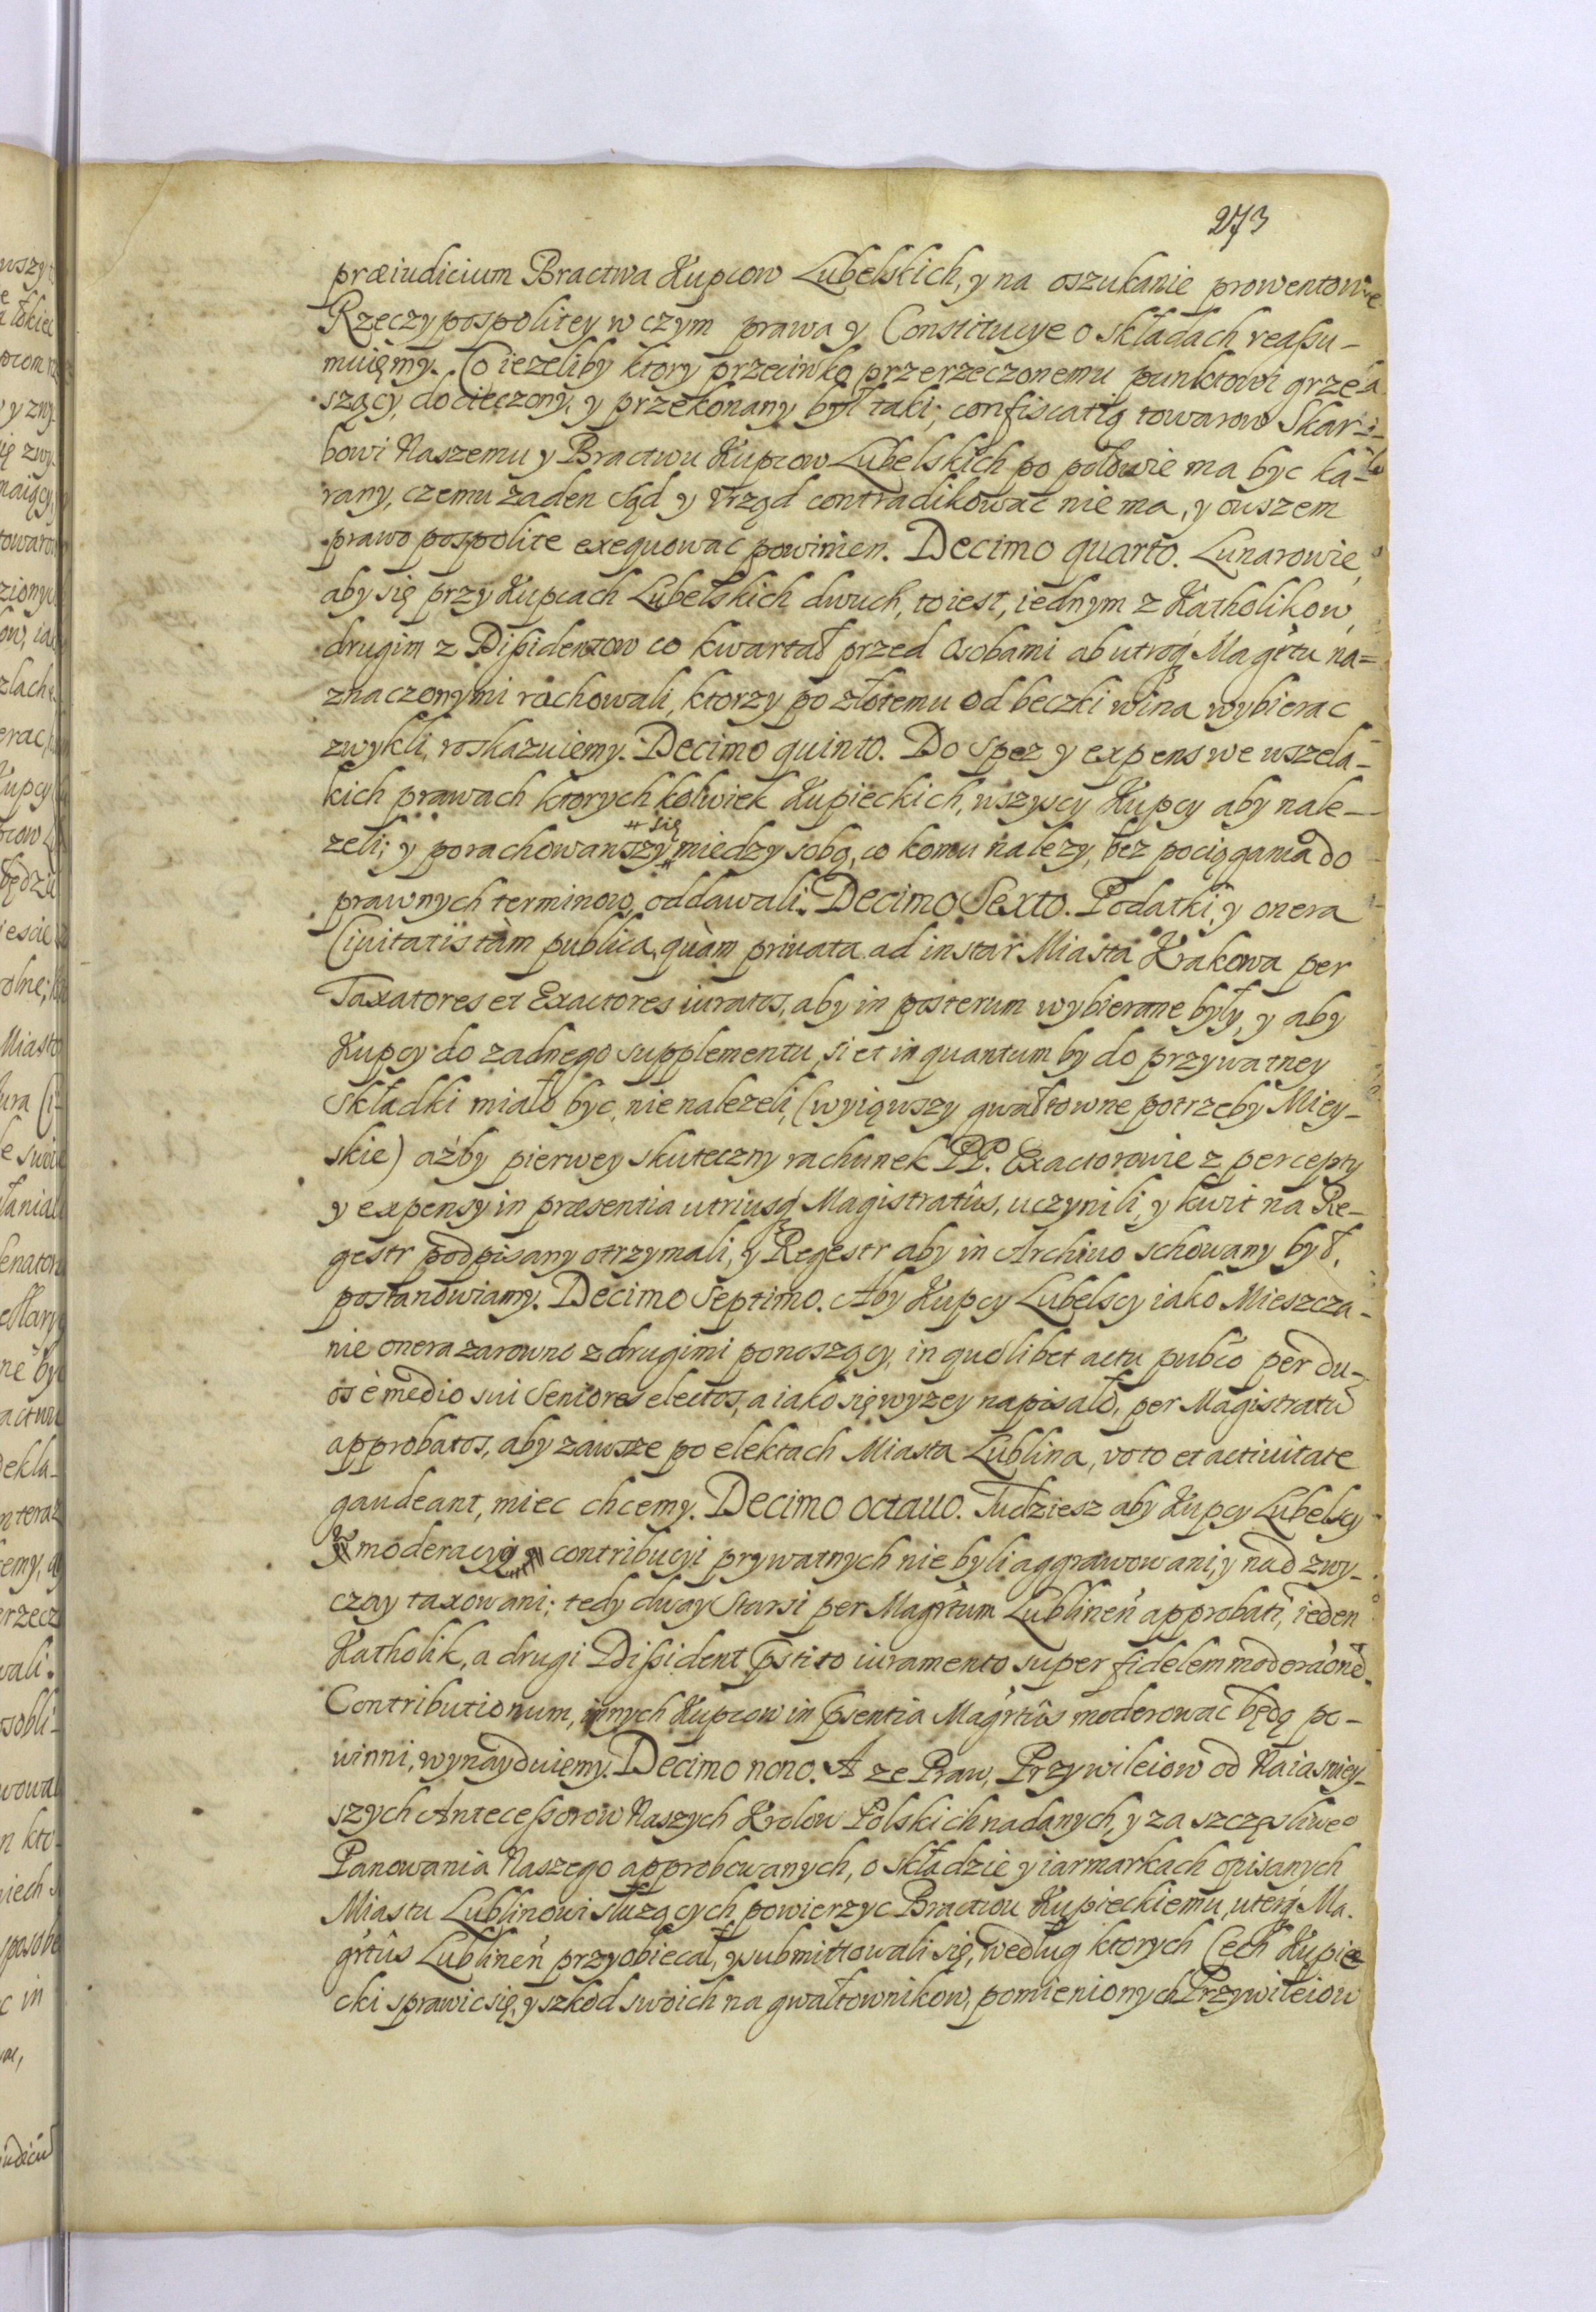 273
præiudicium Bractwa Kupcow Lubelskich, y na oszukanie prowentow
Rzeczypospolitey w czym prawa y Constitucye o składach reaßu-
muięmy. Co iezeliby ktory przeciwko przerzeczonemu punktowi grze-
szący, docieczony, y przekonany był taki; confiscatią towarow Skar-
bowi Naszemu y Bractwu Kupcow Lubelskich po połowie ma byc ka-
rany, czemu zaden Sąd y Vrząd contradikować nie ma, y owszem
prawo pospolite exequować powinien. Decimo quarto. Lunarowie,
aby się przy Kupcach Lubelskich dwuch, to iest, iednym z Katholikow,
drugim z Dißidentow co kwartał przed Osobami ab utroq́ Magr̃tu na=
znaczonymi rachowali, ktorzy po złotemu od beczki wina wybierac
zwykli, roskazuiemy. Decimo quinto. Do spez y expens we wszela-
kich prawach ktorych kolwiek Kupieckich, wszyscy Kupcy aby nale-
# się
zeli; y porachowawszy # miedzy sobą, co komu nalezy, bez pociągania do
prawnych terminow, oddawali. Decimo Sexto. Podatki, y onera
Ciuitatis tam publica, quàm priuata ad instar Miasta Krakowa per
Taxatores et Exactores iuratos, aby in posterum wybierane były, y aby
Kupcy do zadnego supplementu, si et in quantum by do przywatney
Składki miało byc, nie nalezeli, (wyiąwszy gwałtowne potrzeby Miey-
skie) aźby pierwey skuteczny rachunek PP. Exactorowie z percepty
y expensy in præsentia utriusq́ Magistratûs, uczynili, y kwit na Re-
gestr podpisany otrzymali, y Regestr aby in Archiuo schowany był,
postanowiamy. Decimo Septimo. Aby Kupcy Lubelscy iako Mieszcza-
nie onera zarowno z drugimi ponoszący, in quolibet actu pubco per du-
os è medio sui Seniores electos, a iako się wyzey napisało, per Magistratũ
approbatos, aby zawsze po elektach Miasta Lublina, voto et actiuitate
gaudeant, miec chcemy. Decimo octauo. Tudziesz aby Kupcy Lubelscy
moderacyi contribucyi prywatnych nie byli aggrawowani, y nad zwy-
czay taxowani; tedy dway Starsi per Magr̃tum Lublineñ approbati, ieden
Katholik, a drugi Dißident pstito iuramento super fidelem moderaonẽ
Contributionum, innych Kupcow in psentia Magr̃tûs moderować będą po-
winni, wynayduięmy. Decimo nono. A ze Praw, Przywileiow od Naiasniey-
szych Anteceßorow Naszych Krolow Polskich nadanych, y za szczęsliwe͠o
Panowania Naszego approbowanych, o składzie y iarmarkach opisanych
Miastu Lublinowi słuzących, powierzyc Bractwu Kupieckiemu, uterq́ Ma-
gr̃tûs Lublineñ przyobiecał, y submittowali się, według ktorych Cech Kupie-
cki sprawic się, y szkod swoich na gwałtownikow, pomienionych Przywileiow